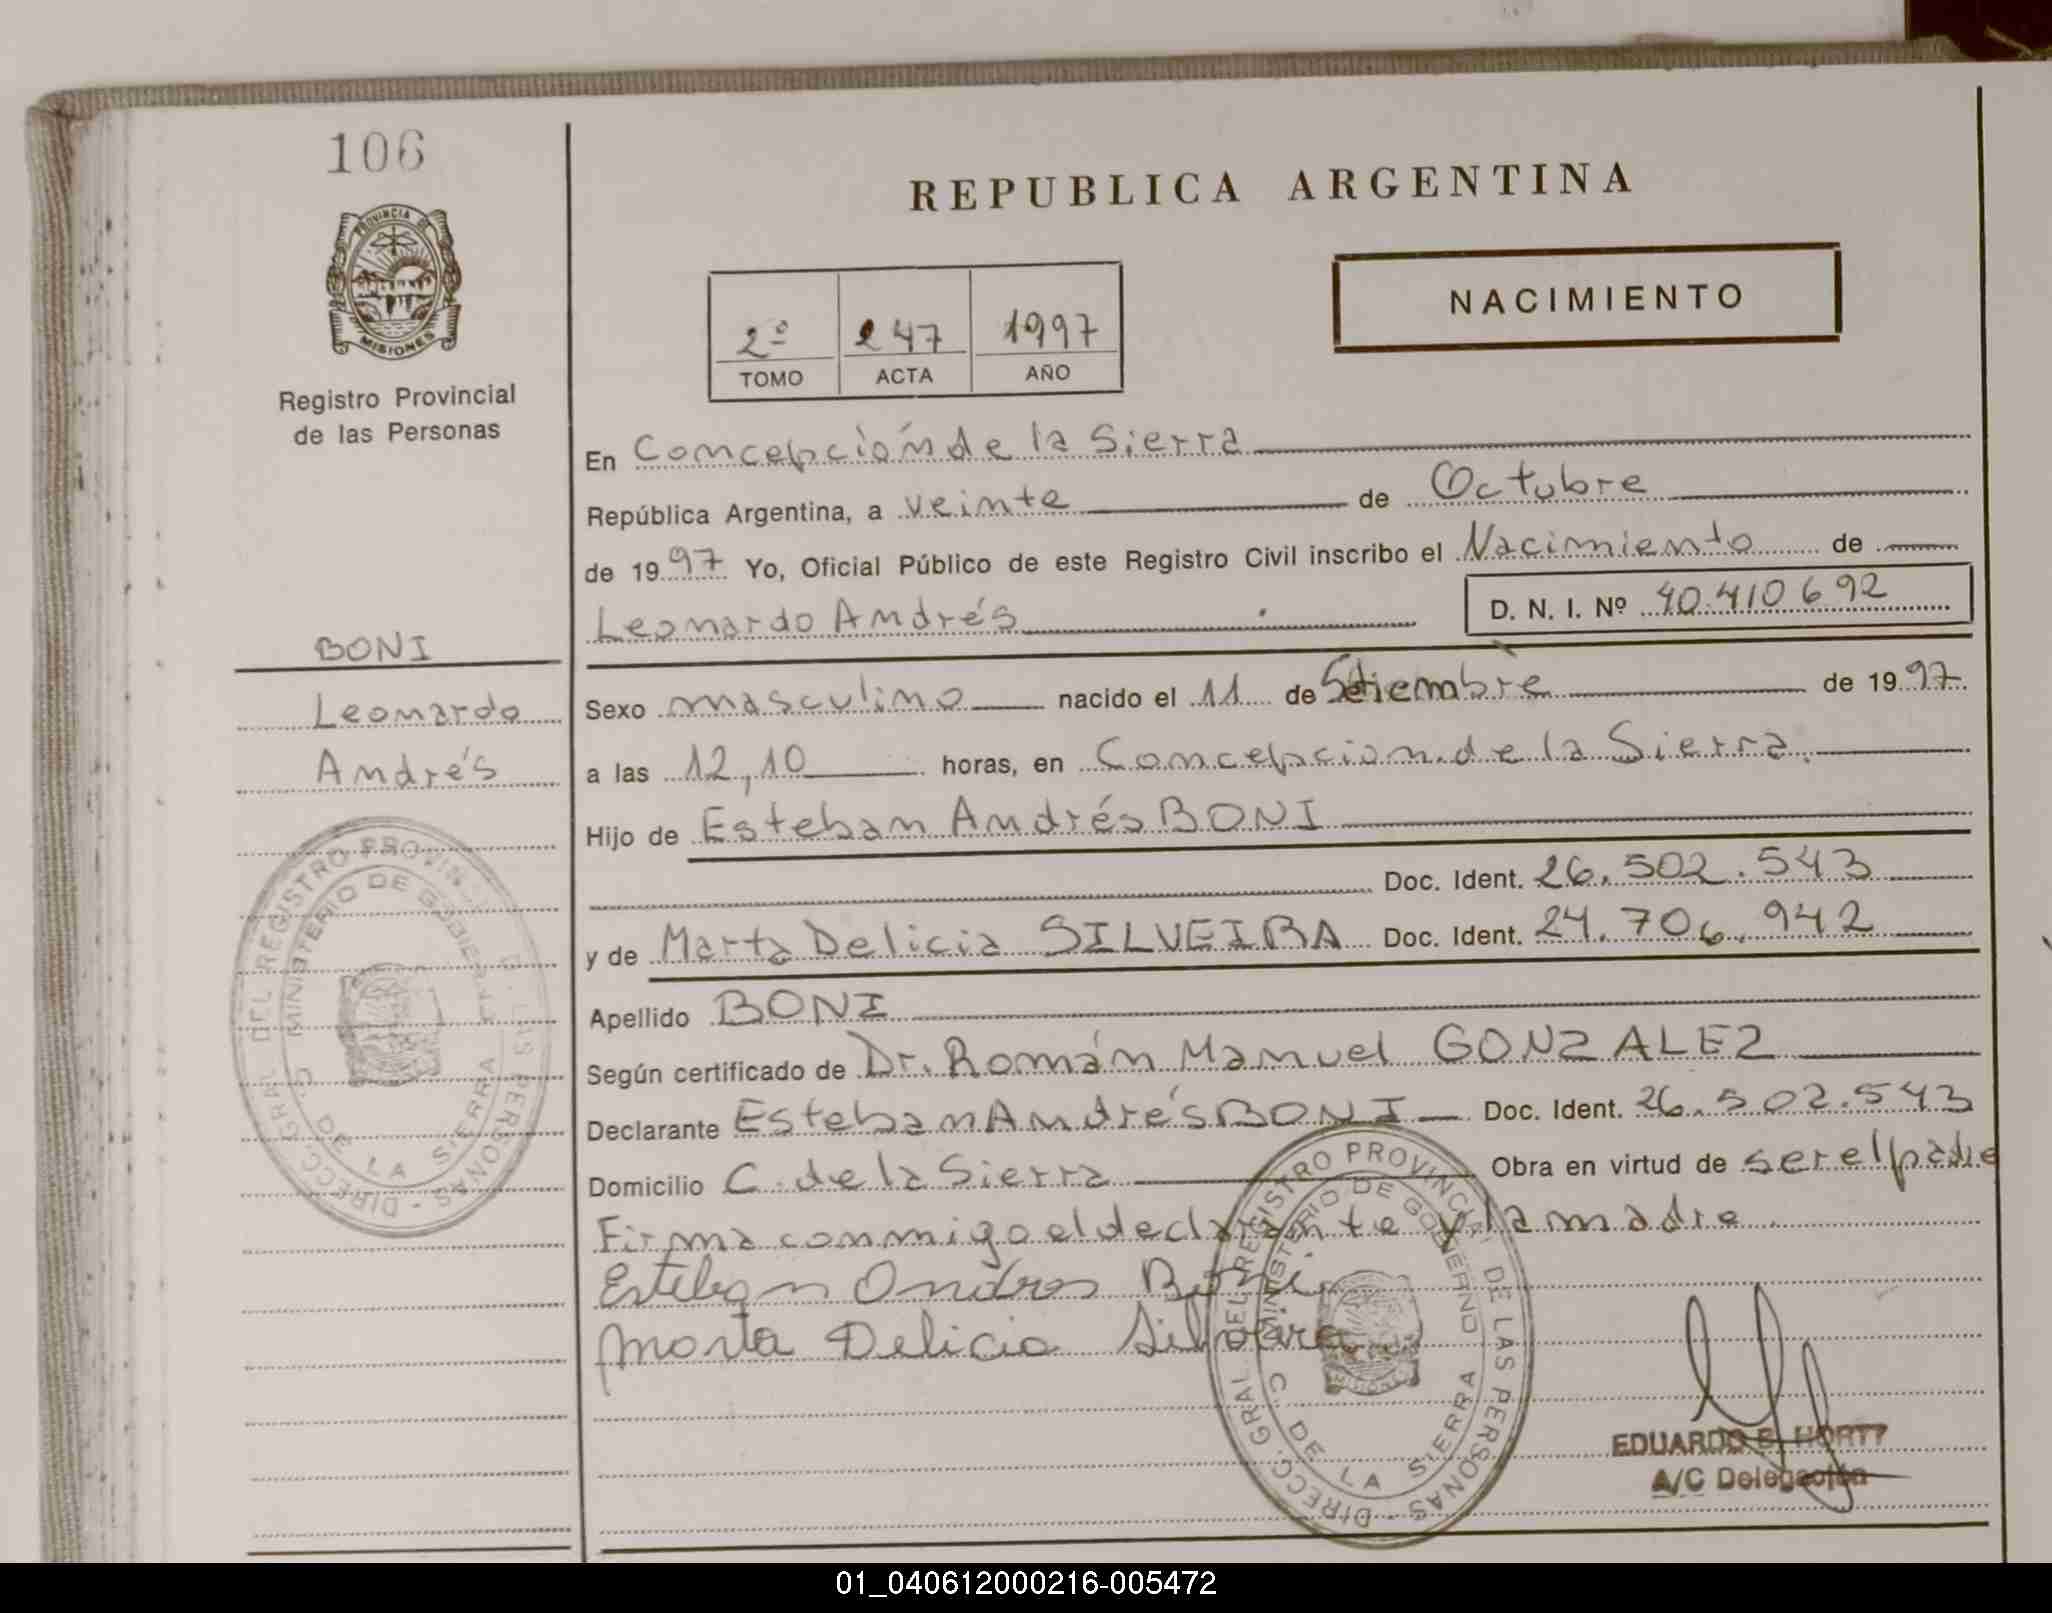 106
PROVINCIA DE
MISIONES
Registro Provincial
de las Personas
BONI
Leonardo
Andrés
DIRECC. GRAL. DEL REGISTRO PROVINCIAL DE LAS PERSONAS
MINISTERIO DE GOBIERNO
C. DE LA SIERRA
REPUBLICA ARGENTINA
2º 247 1997
TOMO ACTA AÑO
NACIMIENTO
En Concepción de la Sierra
República Argentina, a veinte de Octubre
de 1997 Yo, Oficial Público de este Registro Civil inscribo el Nacimiento de
Leonardo Andrés D. N. I. Nº 40.410692
Sexo masculino nacido el 11 de Setiembre de 1997.
a las 12,10 horas, en Concepcion de la Sierra.
Hijo de Esteban Andrés BONI
Doc. Ident. 26.502.543
y de Marta Delicia SILVEIRA Doc. Ident. 24.706.942
Apellido BONI
Según certificado de Dr. Román Manuel GONZALEZ
Declarante Esteban Andrés BONI Doc. Ident. 26.502.543
Domicilio C. de la Sierra Obra en virtud de ser el padre
Firma conmigo el declarante y la madre
Esteban Andres Boni
Marta Delicia Silveira
DIRECC. GRAL. DEL REGISTRO PROVINCIAL DE LAS PERSONAS
MINISTERIO DE GOBIERNO
MISIONES
C. DE LA SIERRA
EDUARDO
A/C Delegación
01_040612000216-005472